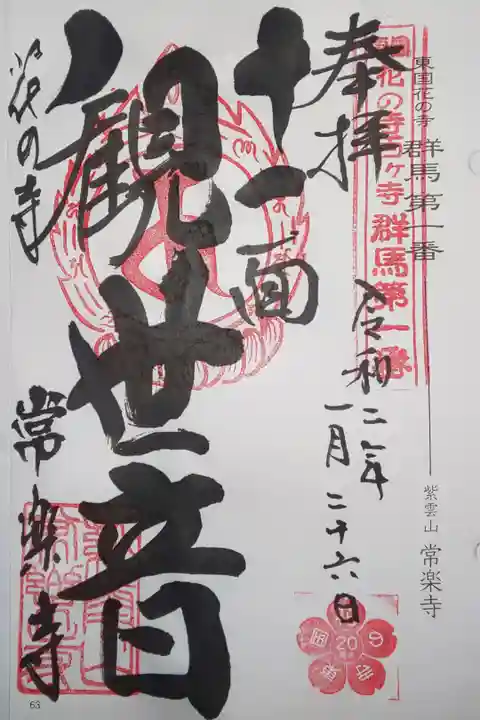 東国花の寺 群馬第一番
紫雲山 常楽寺
花の寺百ヶ寺 群馬第一番
奉拝
令和二年
一月二十六日
十一面
観世音
花の寺
常楽寺
20
63